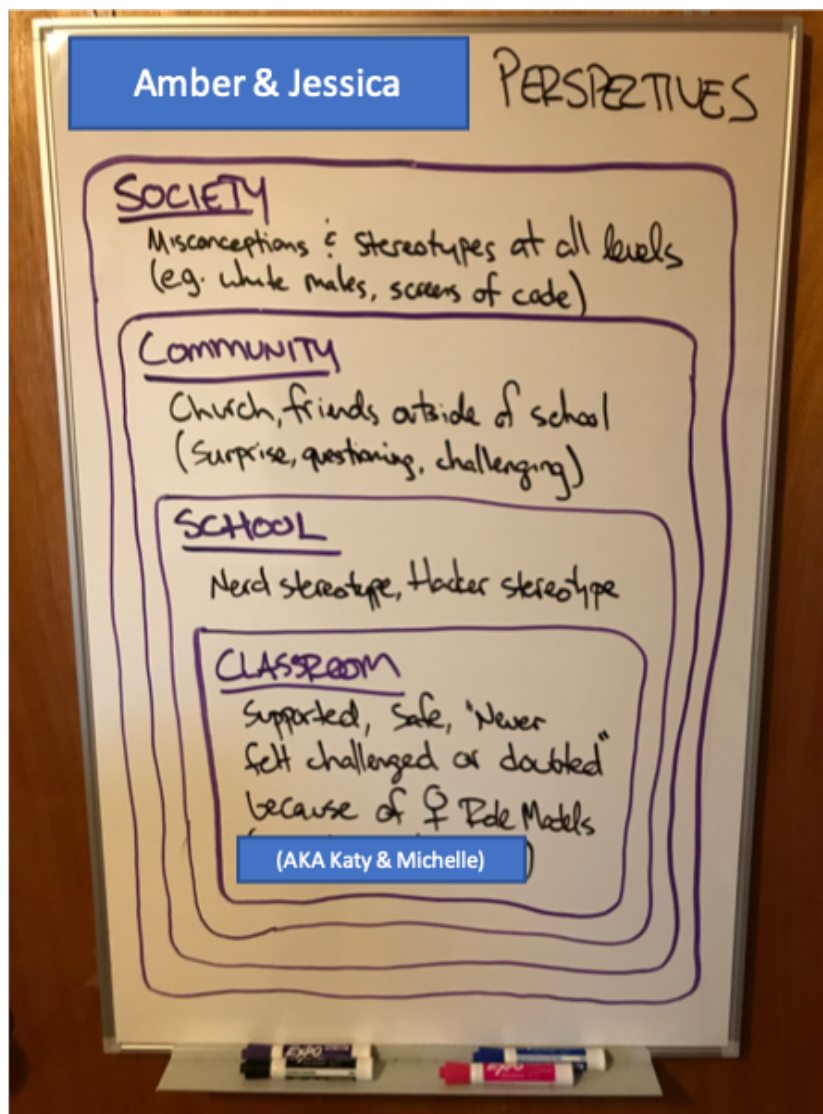 Amber & Jessica
PERSPECTIVES
SOCIETY
Misconceptions & Stereotypes at all levels
(e.g. white males, screens of code)
COMMUNITY
Church, friends outside of school
(Surprise, questioning, challenging)
SCHOOL
Nerd stereotype, Hacker stereotype
CLASSROOM
Supported, Safe, "Never
felt challenged or doubted"
because of ♀ Role Models
(AKA Katy & Michelle)
EXPO
EXPO